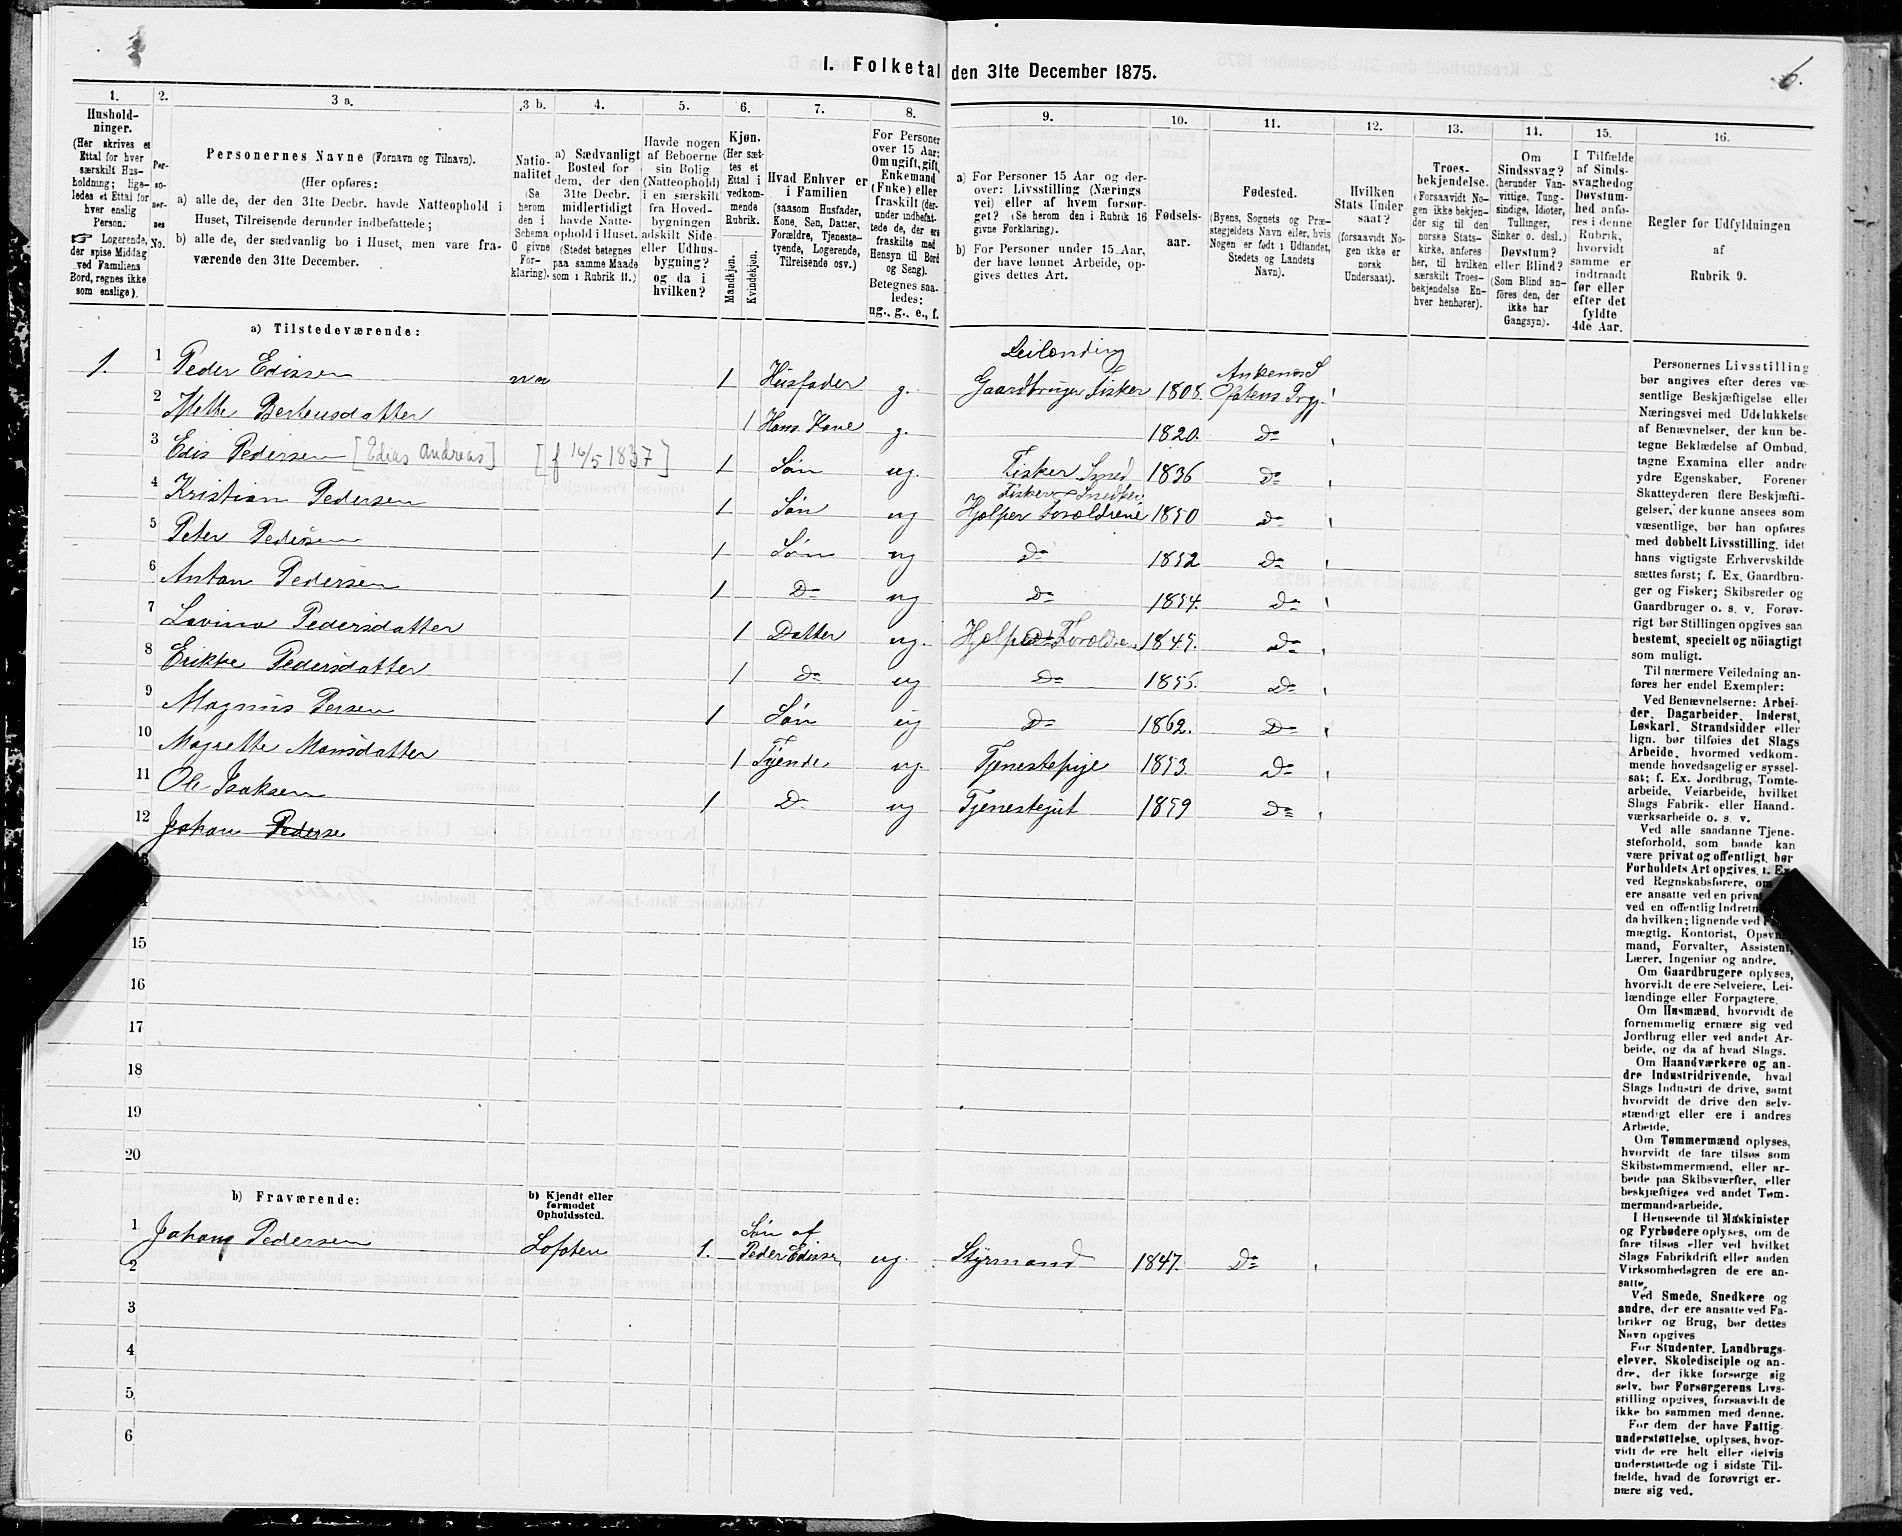 6.
I. Folketal den 31te December 1875.
1.
Hushold-
ninger.
(Her skrives et
Ettal for hver
særskilt Hus-
holdning; lige-
ledes et Ettal for
hver enslig
Person.
☞ Logerende,
der spise Middag
ved Familiens
Bord, regnes ikke
som enslige).
2.
Per-
so-
ner-
nes
No.
3 a.
Personernes Navne (Fornavn og Tilnavn).
(Her opføres:
a) alle de, der den 31te Decbr. havde Natteophold i
Huset, Tilreisende derunder indbefattede;
b) alle de, der sædvanlig bo i Huset, men vare fra-
værende den 31te December.
3 b.
Natio-
nalitet
(Se
herom
den i
Schema
C givne
For-
klaring).
4.
a) Sædvanligt
Bosted for
dem, der den
31te Decbr.
midlertidigt
havde Natte-
ophold i Huset.
(Stedet betegnes
paa samme Maade
som i Rubrik 11.)
5.
Havde nogen
af Beboerne
sin Bolig
(Natteophold)
i en særskilt
fra Hoved-
bygningen
adskilt Side-
eller Udhus-
bygning?
og da i
hvilken?
6.
Kjøn.
(Her sæt-
tes et
Ettal i
vedkom-
mende
Rubrik.
Mandkjøn.
Kvindekjøn.
7.
Hvad Enhver er
i Familien
(saasom Husfader,
Kone, Søn, Datter,
Forældre, Tjeneste-
tyende, Logerende,
Tilreisende osv.)
8.
For Personer
over 15 Aar:
Om ugift, gift,
Enkemand
(Enke) eller
fraskilt (der-
under indbefat-
tede de, der ere
fraskilte med
Hensyn til Bord
og Seng).
Betegnes saa-
ledes:
ug., g., e., f.
9.
a) For Personer 15 Aar og der-
over: Livsstilling (Nærings
vei) eller af hvem forsør-
get? (Se herom den i Rubrik 16
givne Forklaring).
b) For Personer under 15 Aar,
der have lønnet Arbeide, op-
gives dettes Art.
10.
Fødsels-
aar.
11.
Fødested.
(Byens, Sognets og Præ-
stegjeldets Navn eller, hvis
Nogen er født i Udlandet,
Stedets og Landets
Navn).
12.
Hvilken
Stats Under
saat?
(forsaavidt No-
gen ikke er
norsk
Undersaat).
13.
Troes-
bekjendelse.
(Forsaavidt No-
gen ikke bekjen-
der sig til den
norske Stats-
kirke, anføres
her, til hvilken
særskilt Troes-
bekjendelse En-
hver henhører).
14.
Om
Sindssvag?
(herunder Van-
vittige, Tung-
sindige, Idioter,
Tullinger,
Sinker o. desl.)
Døvstum?
eller Blind?
(Som Blind an-
føres den, der
ikke har
Gangsyn).
15.
I Tilfælde
af Sinds-
svaghed og
Døvstum-
hed anfø-
res i denne
Rubrik,
hvorvidt
samme er
indtraadt
før eller
efter det
fyldte
4de Aar.
16.
Regler for Udfyldningen
af
Rubrik 9.
a) Tilstedeværende:
Leilænding
1. 1 Peder Edissen nn 1 Husfader g. Gaardbruger Fisker 1808. Ankenæs Ofotens Prgj.
2 Mette Berteusdatter 1 Hans Kone g. 1820. Do
3 Edis Pedersen [Edias Andreas] [f 16/5 1837] 1 Søn ug. Fisker Smed 1836 Do
Fisker Snedker
4 Kristian Pedersen 1 Søn ug Hjælper Forældrene 1850 Do
5 Peter Pedersen 1 Søn ug Do 1852 Do
6 Anton Pedersen 1 Do ug Do 1854. Do
7 Lovina Pedersdatter 1 Datter ug. Hjælper Forældrene 1845. Do
8 Erikke Pedersdatter 1 Do ug Do 1855. Do
9 Magnus Persen 1 Søn ug Do 1862. Do
10 Magrette Monsdatter 1 Tyende ug Tjenestepige 1853. Do
11 Ole Isaksen 1 Do ug Tjenestegut 1859 Do
12 Johan Pederse
15
16
17
18
19
20
b) Fraværende:
b) Kjendt eller
formodet
Opholdssted.
1 Johans Pedersen Lofoten 1. Søn af Peder Edissen ug. Styrmand 1847. Do
2
3
4
5
6
Personernes Livsstilling
bør angives efter deres væ-
sentlige Beskjæftigelse eller
Næringsvei med Udelukkelse
af Benævnelser, der kun be-
tegne Beklædelse af Ombud,
tagne Examina eller andre
ydre Egenskaber. Forener
Skatteyderen flere Beskjæfti-
gelser, der kunne ansees som
væsentlige, bør han opføres
med dobbelt Livsstilling, idet
hans vigtigste Erhvervskilde
sættes først; f. Ex. Gaardbru-
ger og Fisker; Skibsreder og
Gaardbruger o. s. v. Forøv-
rigt bør Stillingen opgives saa
bestemt, specielt og nöiagtigt
som muligt.
Til nærmere Veiledning an-
føres her endel Exempler:
Ved Benævnelserne: Arbei-
der, Dagarbeider, Inderst,
Løskarl, Strandsidder eller
lign. bør tilføies det Slags
Arbeide, hvormed vedkom-
mende hovedsagelig er syssel-
sat; f. Ex. Jordbrug, Tomte-
arbeide, Veiarbeide, hvilket
Slags Fabrik- eller Haand-
værksarbeide o. s. v.
Ved alle saadanne Tjene-
steforhold, som baade kan
være privat og offentligt, bør
Forholdets Art opgives, f. Ex.
ved Regnskabsførere, om
ere ansatte ved en privat
ved en offentlig Indretn
da hvilken; lignende ved
mægtig, Kontorist, Opsyns-
mand, Forvalter, Assistent,
Lærer, Ingeniør og andre.
Om Gaardbrugere oplyses,
hvorvidt de ere Selveiere, Lei-
lændinge eller Forpagtere.
Om Husmænd, hvorvidt de
fornemmelig ernære sig ved
Jordbrug eller ved andet Ar-
beide, og da af hvad Slags.
Om Haandværkere og an-
dre Industridrivende, hvad
Slags Industri de drive, samt
hvorvidt de drive den selv-
stændigt eller ere i andres
Arbeide.
Om Tømmermænd oplyses,
hvorvidt de fare tilsøs som
Skibstømmermænd, eller ar-
beide paa Skibsværfter, eller
beskjæftiges ved andet Tøm-
mermandsarbeide.
I Henseende til Maskinister
og Fyrbødere oplyses, om de
fare tilsøs eller ved hvilket
Slags Fabrikdrift eller anden
Virksomhedsgren de ere an-
satte.
Ved Smede, Snedkere og
andre, der ere ansatte ved Fa-
briker og Brug, bør dettes
Navn opgives
For Studenter, Landbrugs-
elever, Skoledisciple og an-
dre, der ikke forsørge sig
selv, bør Forsørgerens Livs-
stilling opgives, forsaavidt de
ikke bo sammen med denne.
For dem der have Fattig-
understøttelse, oplyses, hvor-
vidt de ere helt eller delvis
understøttede og i sidste Til-
fælde, hvad de forøvrigt er-
nære sig ved.